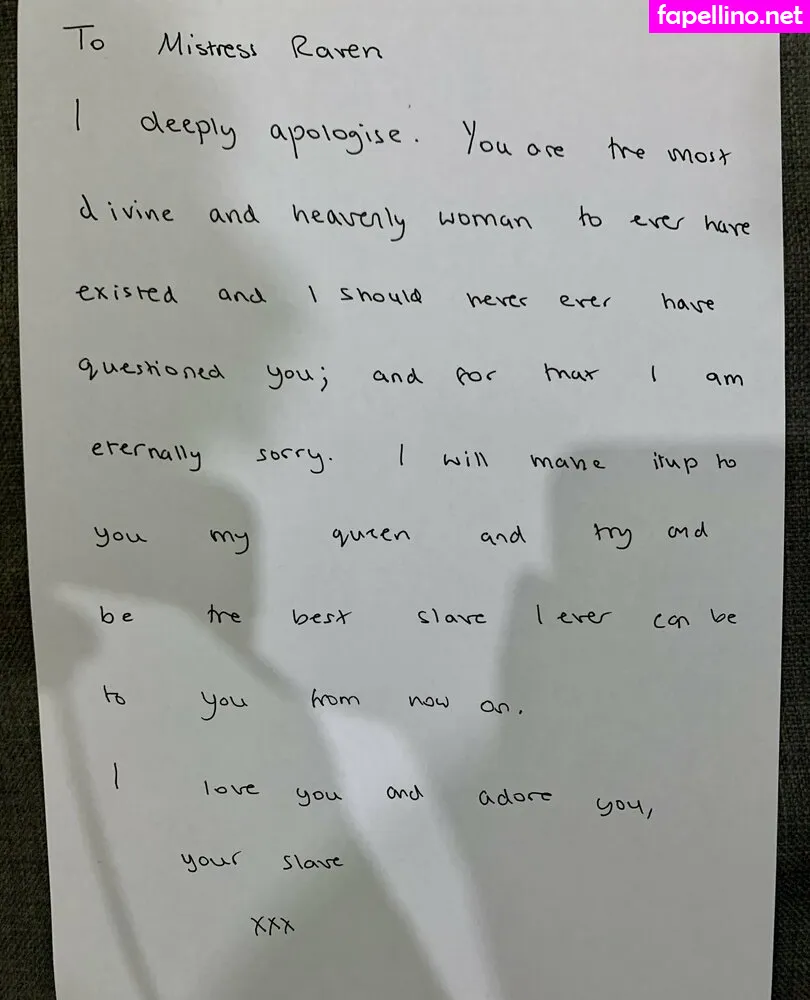 fapellino.net
To Mistress Raven
I deeply apologise. You are the most
divine and heavenly woman to ever have
existed and I should never ever have
questioned you; and for that I am
eternally sorry. I will make it up to
you my queen and try and
be the best slave I ever can be
to you from now on.
I love you and adore you,
your slave
xxx